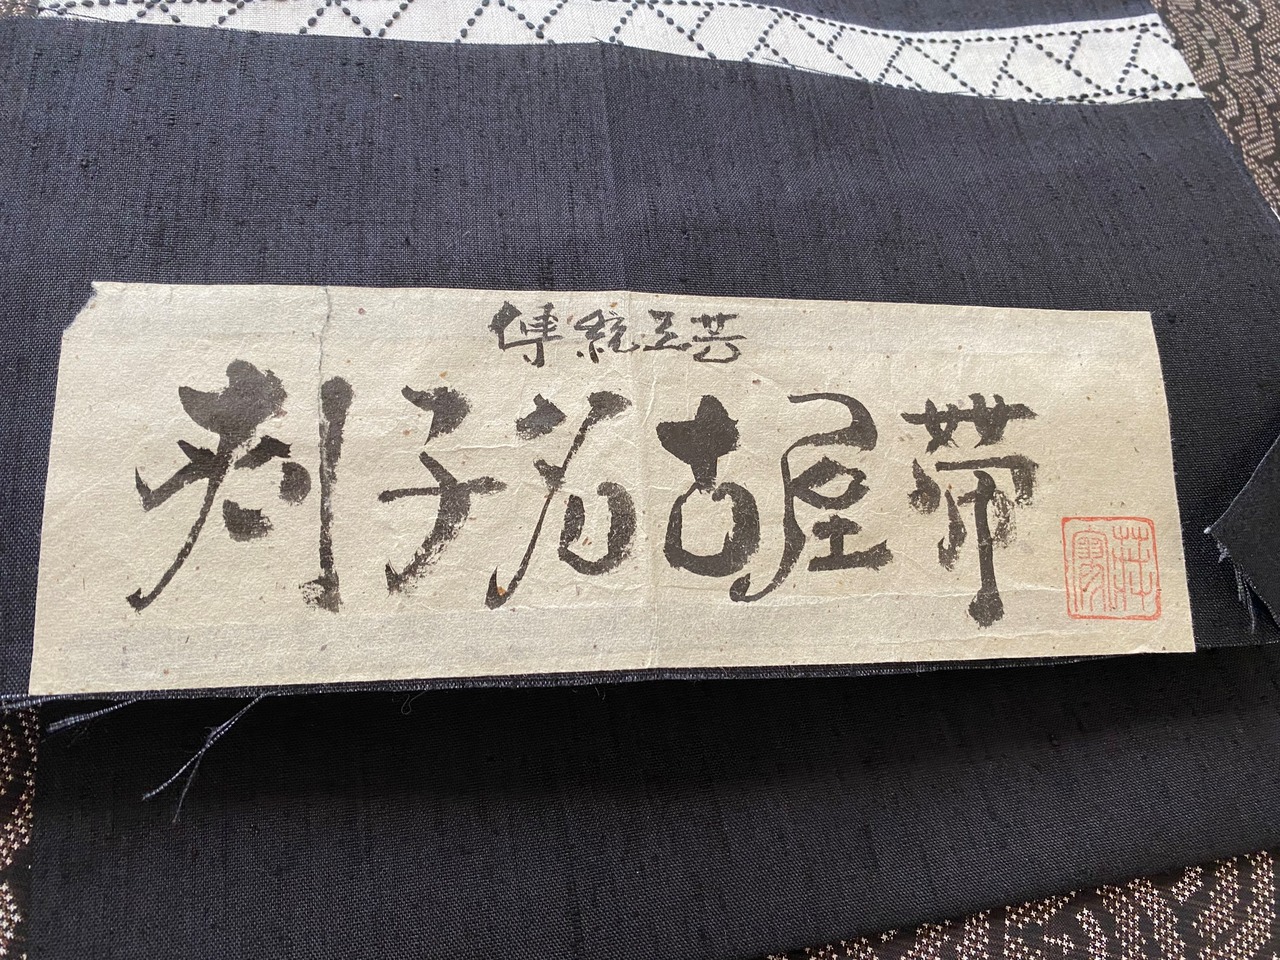 傳統工芸
刺子名古屋帯